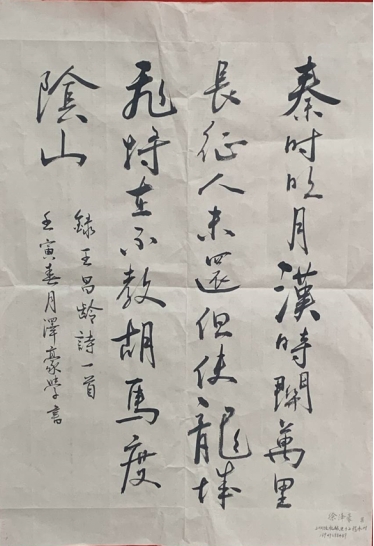 秦时明月漢時關萬里
長征人未還但使龍城
飛將在不教胡馬度
陰山
録王昌龄詩一首
壬寅春月澤豪學書